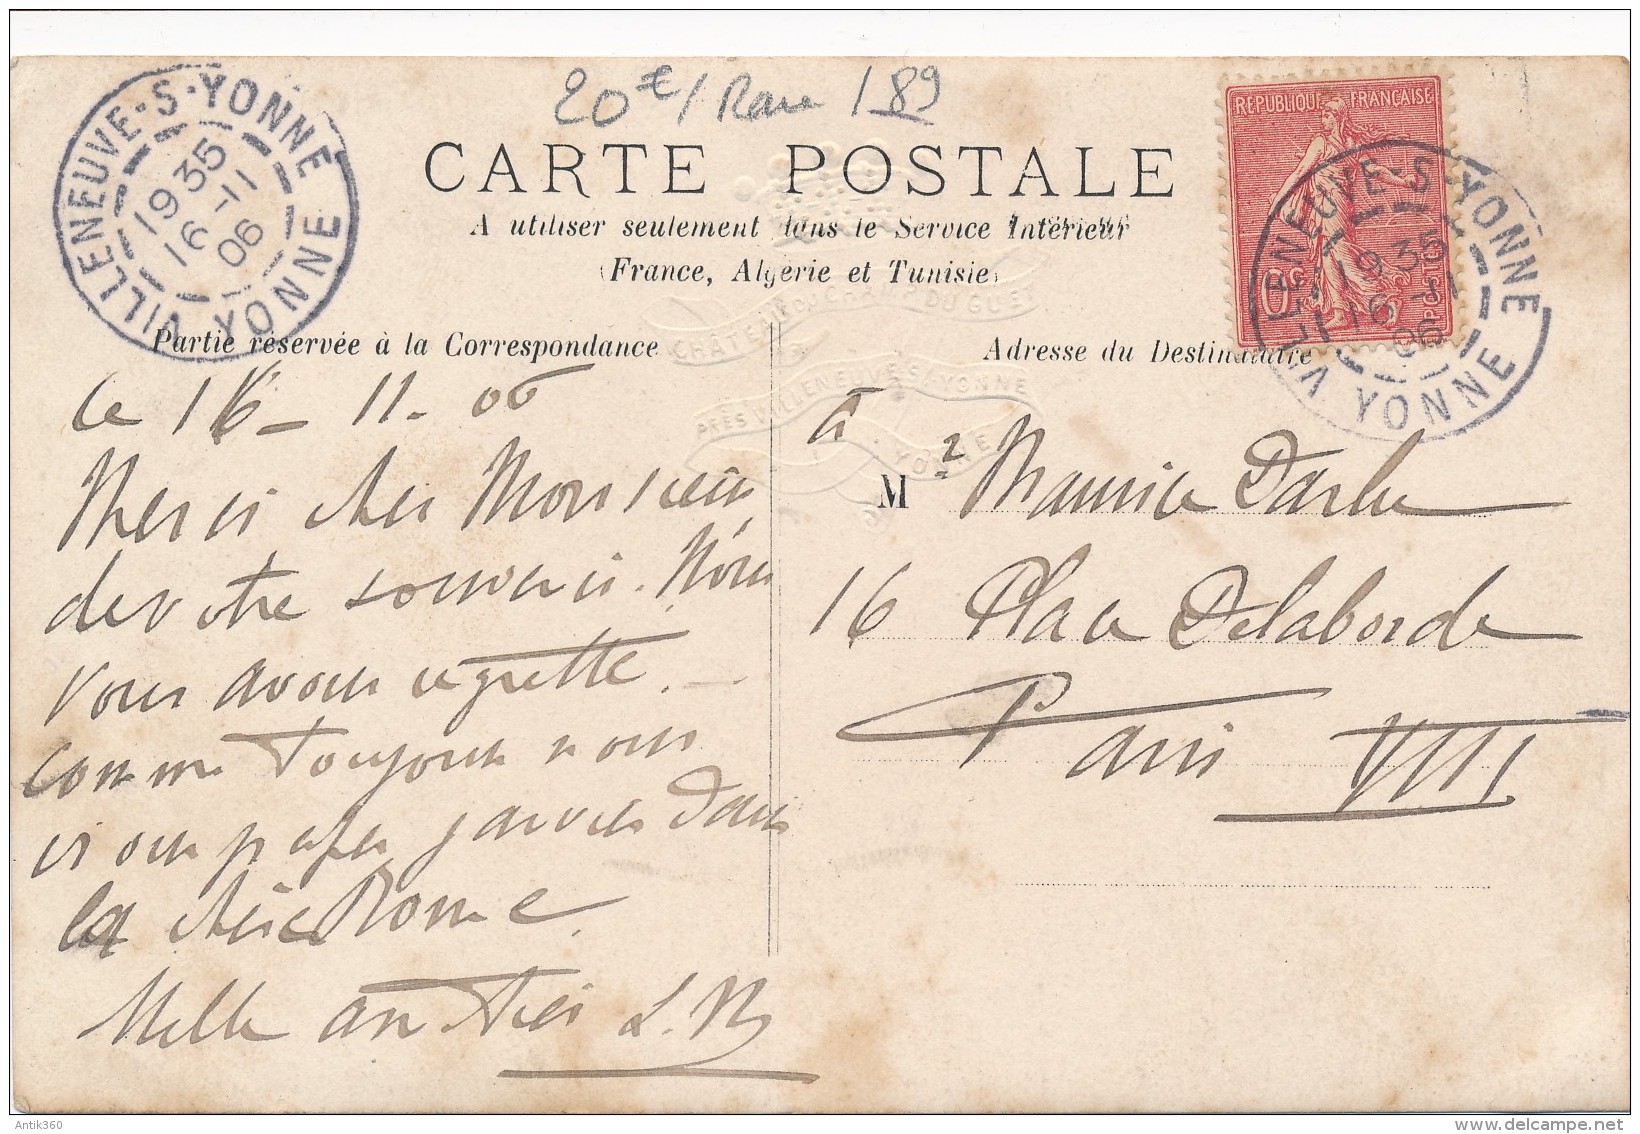 20€/ Rare 189
CARTE POSTALE
A utiliser seulement dans le Service Intérieur
(France, Algérie et Tunisie)
VILLENEUVE-S-YONNE
YONNE
19 35
16 -11
06
REPUBLIQUE FRANÇAISE
10c
POSTES
VILLENEUVE-S-YONNE
YONNE
19 35
16 -11
06
CHATEAU DU CHAMP DU GUET
PRÈS VILLENEUVE S/ YONNE
YONNE
Partie réservée à la Correspondance
Adresse du Destinataire
Le 16 - 11 - 06
Merci cher Monsieur
de votre souvenir. Nous
vous avons regretté.
comme toujours nous
irons passer janvier dans
la chère Rome.
Mille amitiés L.B
à
M r Maurice Darlu
16 Place Delaborde
Paris VIII
Antik360
delcampe.net